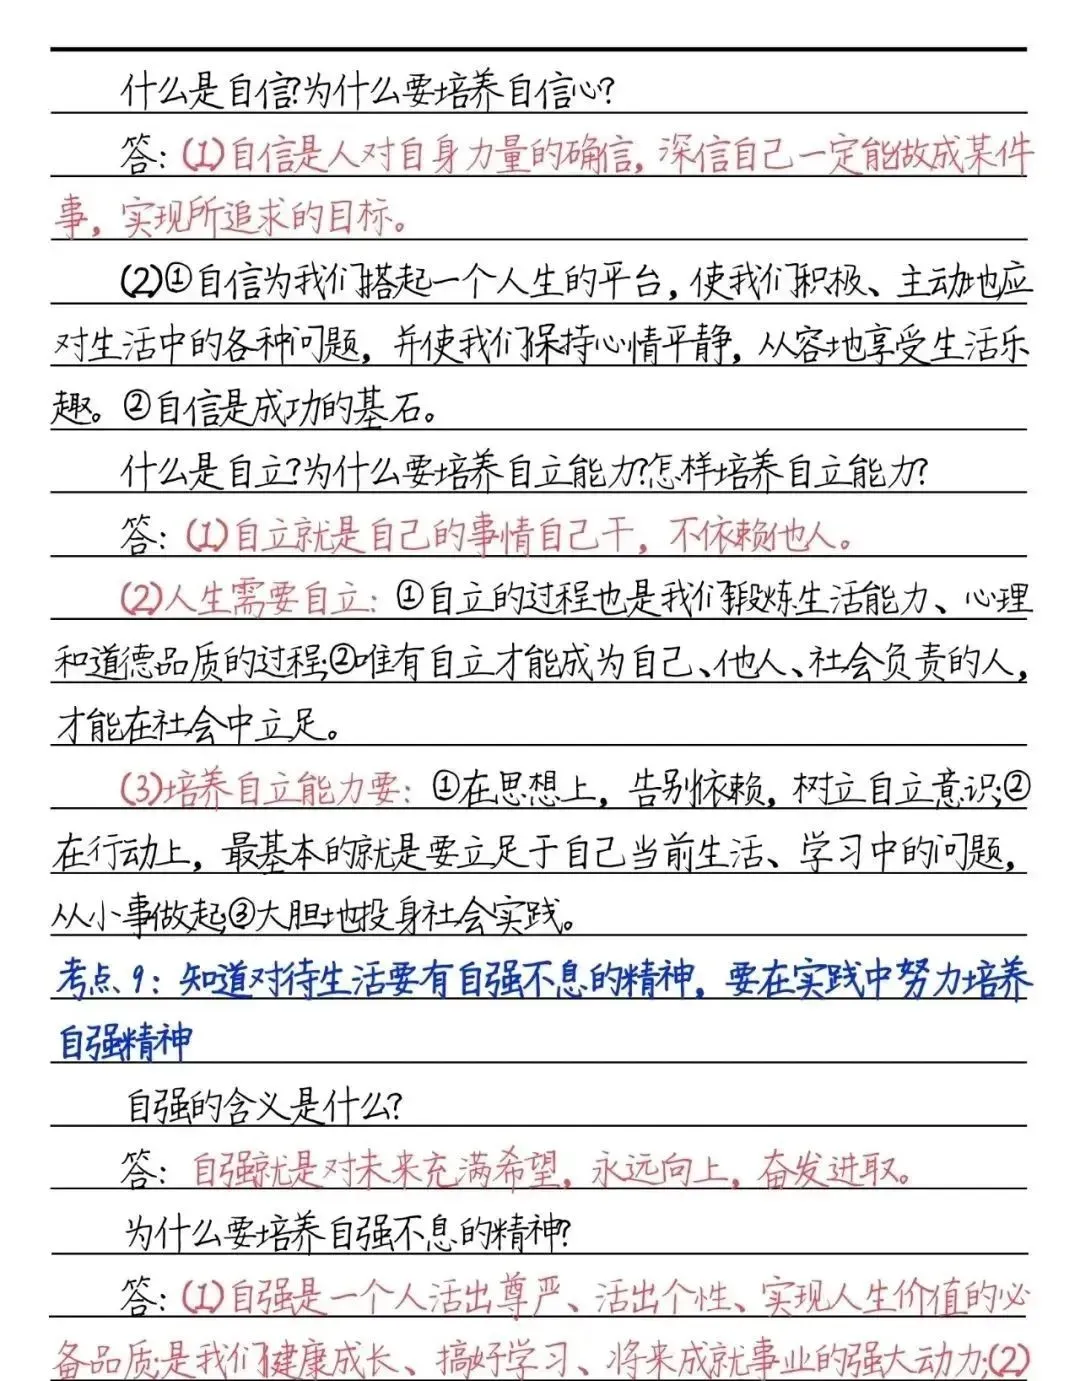 什么是自信?为什么要培养自信心?
答:(1)自信是人对自身力量的确信,深信自己一定能做成某件
事,实现所追求的目标。
(2)①自信为我们搭起一个人生的平台,使我们积极、主动地应
对生活中的各种问题,并使我们保持心情平静,从容地享受生活乐
趣。②自信是成功的基石。
什么是自立?为什么要培养自立能力?怎样培养自立能力?
答:(1)自立就是自己的事情自己干,不依赖他人。
(2)人生需要自立:①自立的过程也是我们锻炼生活能力、心理
和道德品质的过程;②唯有自立才能成为自己、他人、社会负责的人,
才能在社会中立足。
(3)培养自立能力要:①在思想上,告别依赖,树立自立意识;②
在行动上,最基本的就是要立足于自己当前生活、学习中的问题,
从小事做起;③大胆地投身社会实践。
考点、9:知道对待生活要有自强不息的精神,要在实践中努力培养
自强精神
自强的含义是什么?
答:自强就是对未来充满希望,永远向上,奋发进取。
为什么要培养自强不息的精神?
答:(1)自强是一个人活出尊严、活出个性、实现人生价值的必
备品质;是我们健康成长、搞好学习、将来成就事业的强大动力;(2)